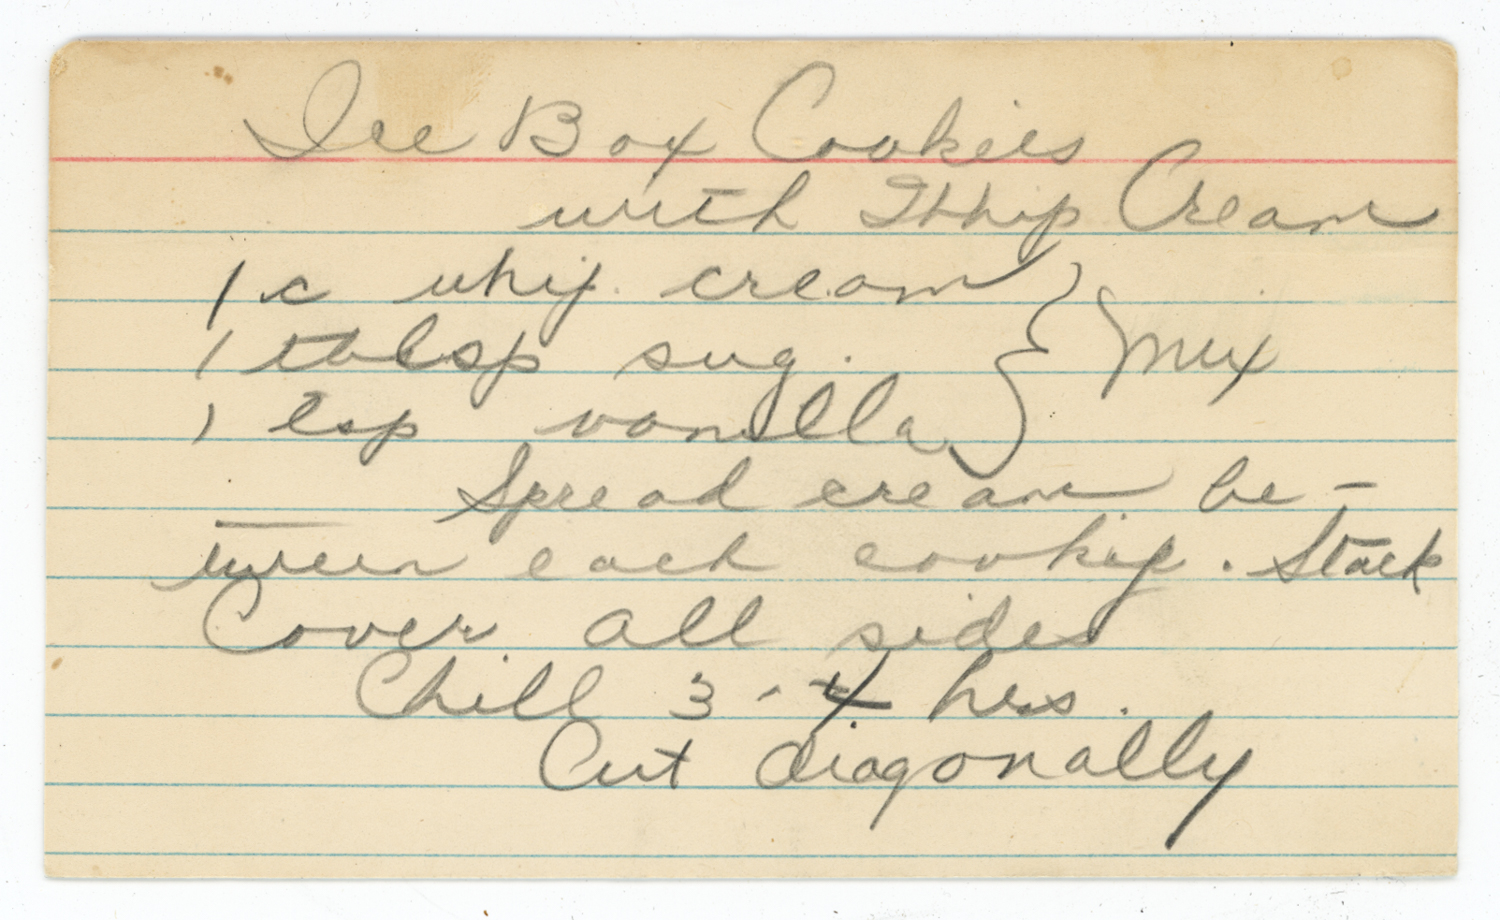 Ice Box Cookies
with Whip Cream
1 c whip. cream
1 tblsp sug.
1 tsp vanilla
} Mix
Spread cream be-
tween each cookie. Stack
Cover all sides
Chill 3-4 hrs.
Cut diagonally